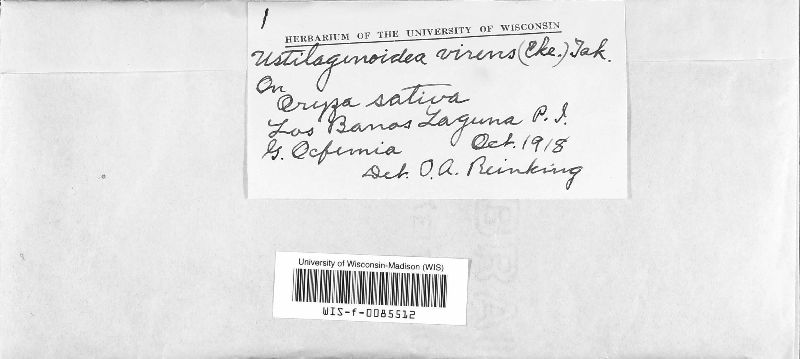 1
HERBARIUM OF THE UNIVERSITY OF WISCONSIN
Ustilaginoidea virens (Cke.) Tak.
On
Oryza sativa
Los Banos Laguna P. I.
G. Ocfemia Oct. 1918
Det. O. A. Reinking
University of Wisconsin-Madison (WIS)
WIS-f-0085512